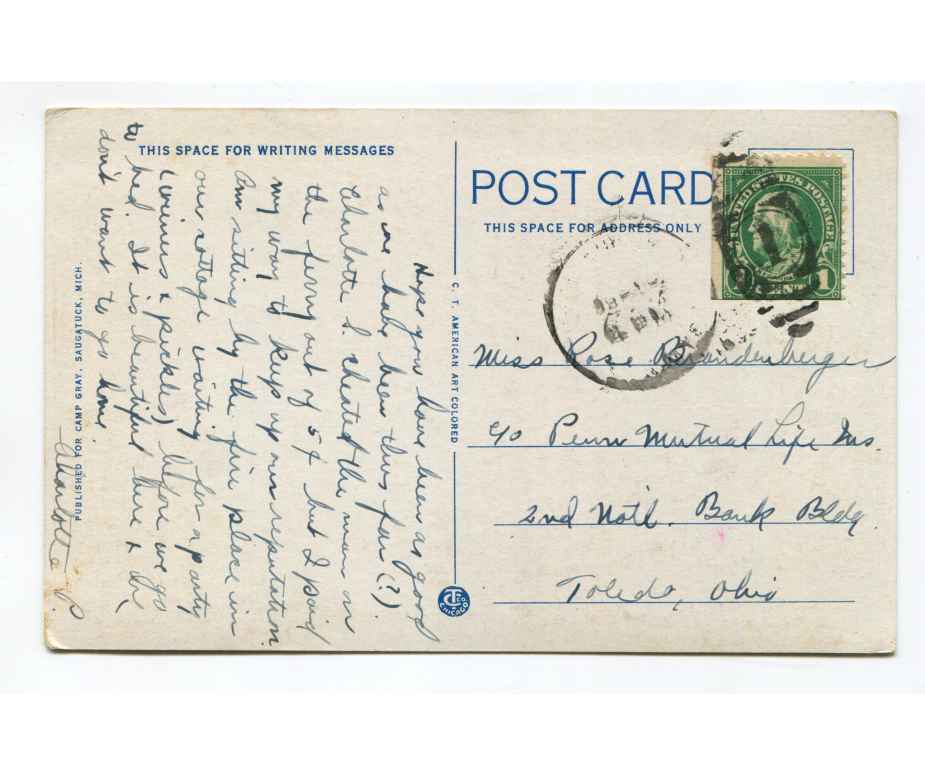 THIS SPACE FOR WRITING MESSAGES
POST CARD
THIS SPACE FOR ADDRESS ONLY
UNITED STATES POSTAGE
1 1
Hope you have been as good
as we have been thus far (?)
Charlotte L. cheated the man on
the ferry out of 5¢ but I paid
my way to keep up our reputation.
Am sitting by the fire place in
our cottage waiting for a party
(wieners & pickles) before we go
to bed. It is beautiful here & I
don't want to go home.
Charlotte P.
PUBLISHED FOR CAMP GRAY, SAUGATUCK, MICH.
C. T. AMERICAN ART COLORED
CHICAGO
Miss Rose Brandenberger
c/o Penn Mutual Life Ins.
2nd Nat'l. Bank Bldg.
Toledo, Ohio